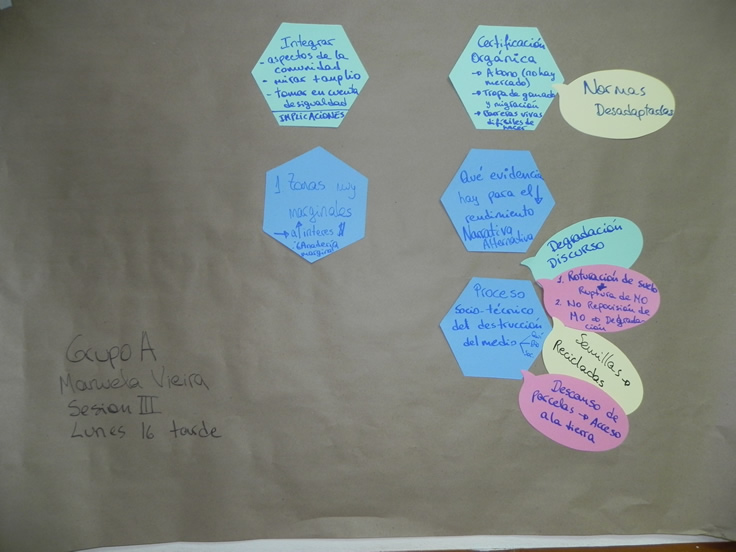 Integrar
- aspectos de la
comunidad
- mirar + amplio
- tomar en cuenta
desigualdad
IMPLICACIONES
Certificación
Orgánica
→ Abono (no hay
mercado)
→ Tropa de ganado
y migración
→ Barreras vivas
difíciles de
hacer
Normas
Desadaptadas
1 Zonas muy
marginales
→ al interes
marginal
Qué evidencia
hay para el ↓
rendimiento
Narrativa
Alternativa
Degradación
DISCURSO
1. Roturación de suelo
Ruptura de MO
2. No Reposición de
MO → Degrada-
ción
Proceso
Socio-técnico
del destrucción
del medio
Semillas →
Recicladas
Descanso de
parcelas → Acceso
a la tierra
Grupo A
Manuela Vieira
Sesion III
Lunes 16 tarde